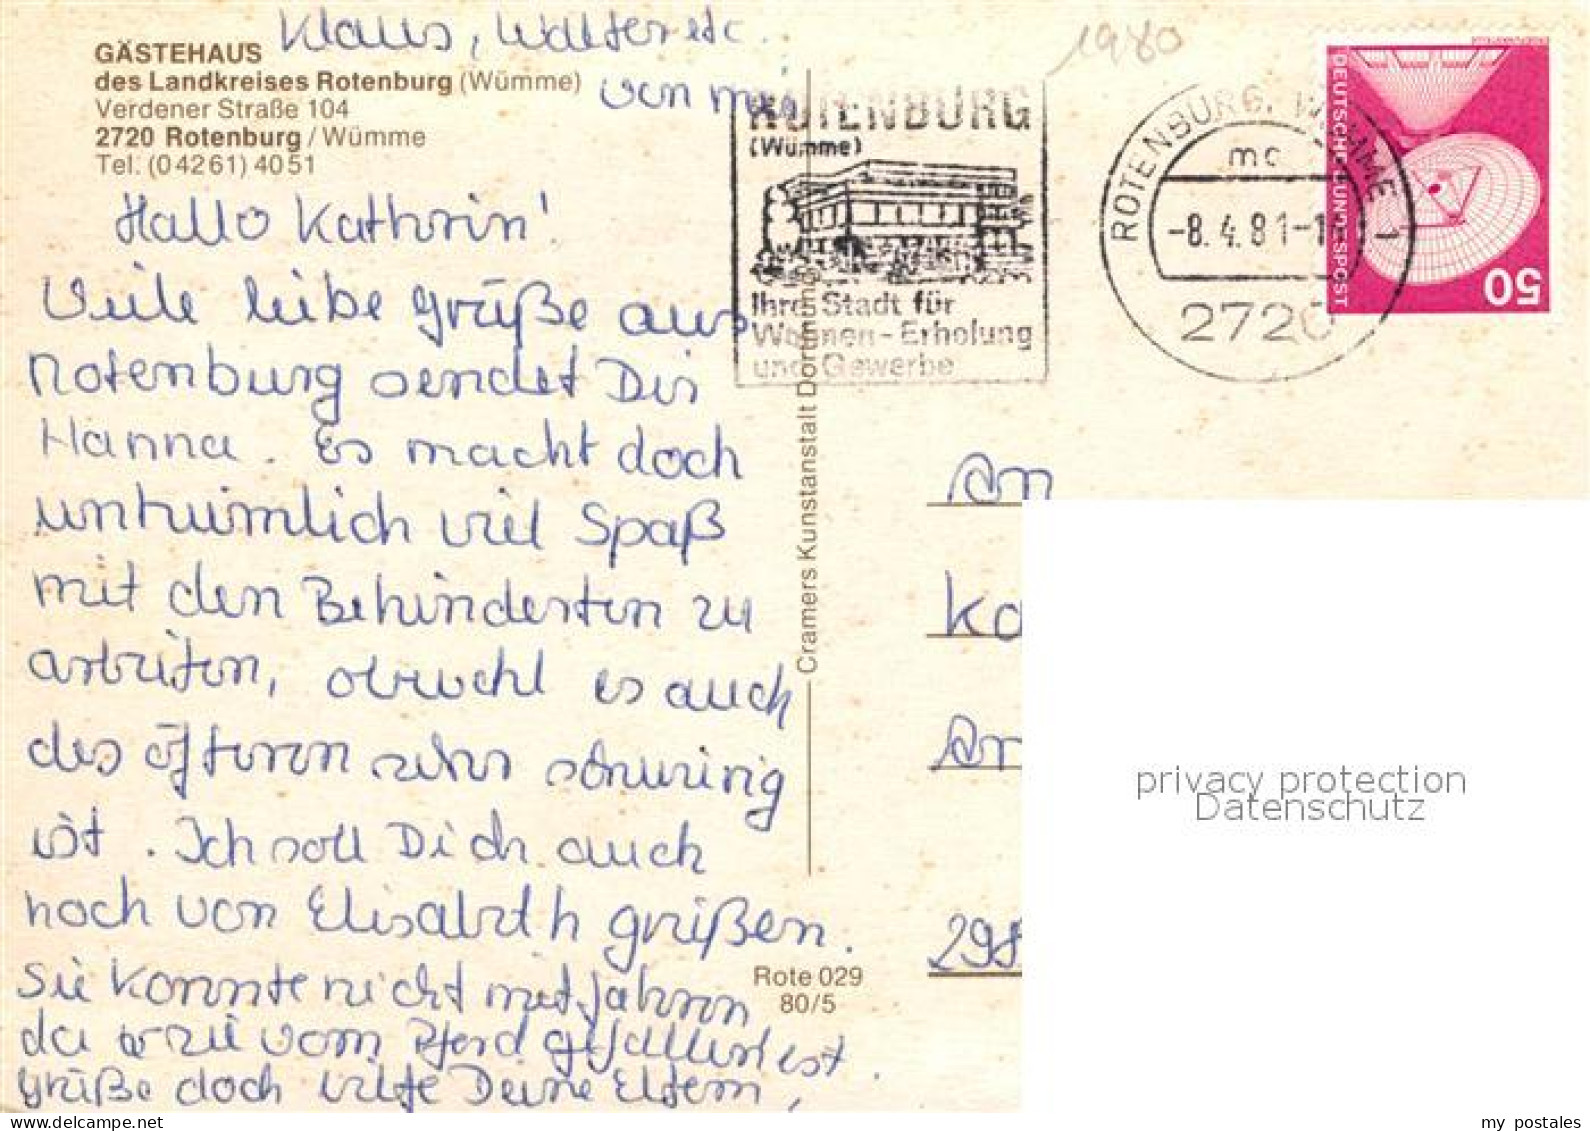 Klaus, Walter etc.
von mir
1980
GÄSTEHAUS
des Landkreises Rotenburg (Wümme)
Verdener Straße 104
2720 Rotenburg / Wümme
Tel. (0 42 61) 40 51
Hallo Kathrin!
Viele liebe Grüße aus
Rotenburg sendet Dir
Hanna. Es macht doch
unheimlich viel Spaß
mit den Behinderten zu
arbeiten, obwohl es auch
des öfteren sehr schwierig
ist. Ich soll Dich auch
noch von Elisabeth grüßen.
Sie konnte nicht mitfahren
da sie vom Pferd gefallen ist.
Grüße doch bitte Deine Eltern,
ROTENBURG
(Wümme)
Ihre Stadt für
Wohnen - Erholung
und Gewerbe
ROTENBURG, WÜMME 1
mc
-8.4.81-1
2720
DEUTSCHE BUNDESPOST
50
Cramers Kunstanstalt Dortmund
Rote 029
80/5
An
Ka
An
298
privacy protection
Datenschutz
www.delcampe.net
my_postales